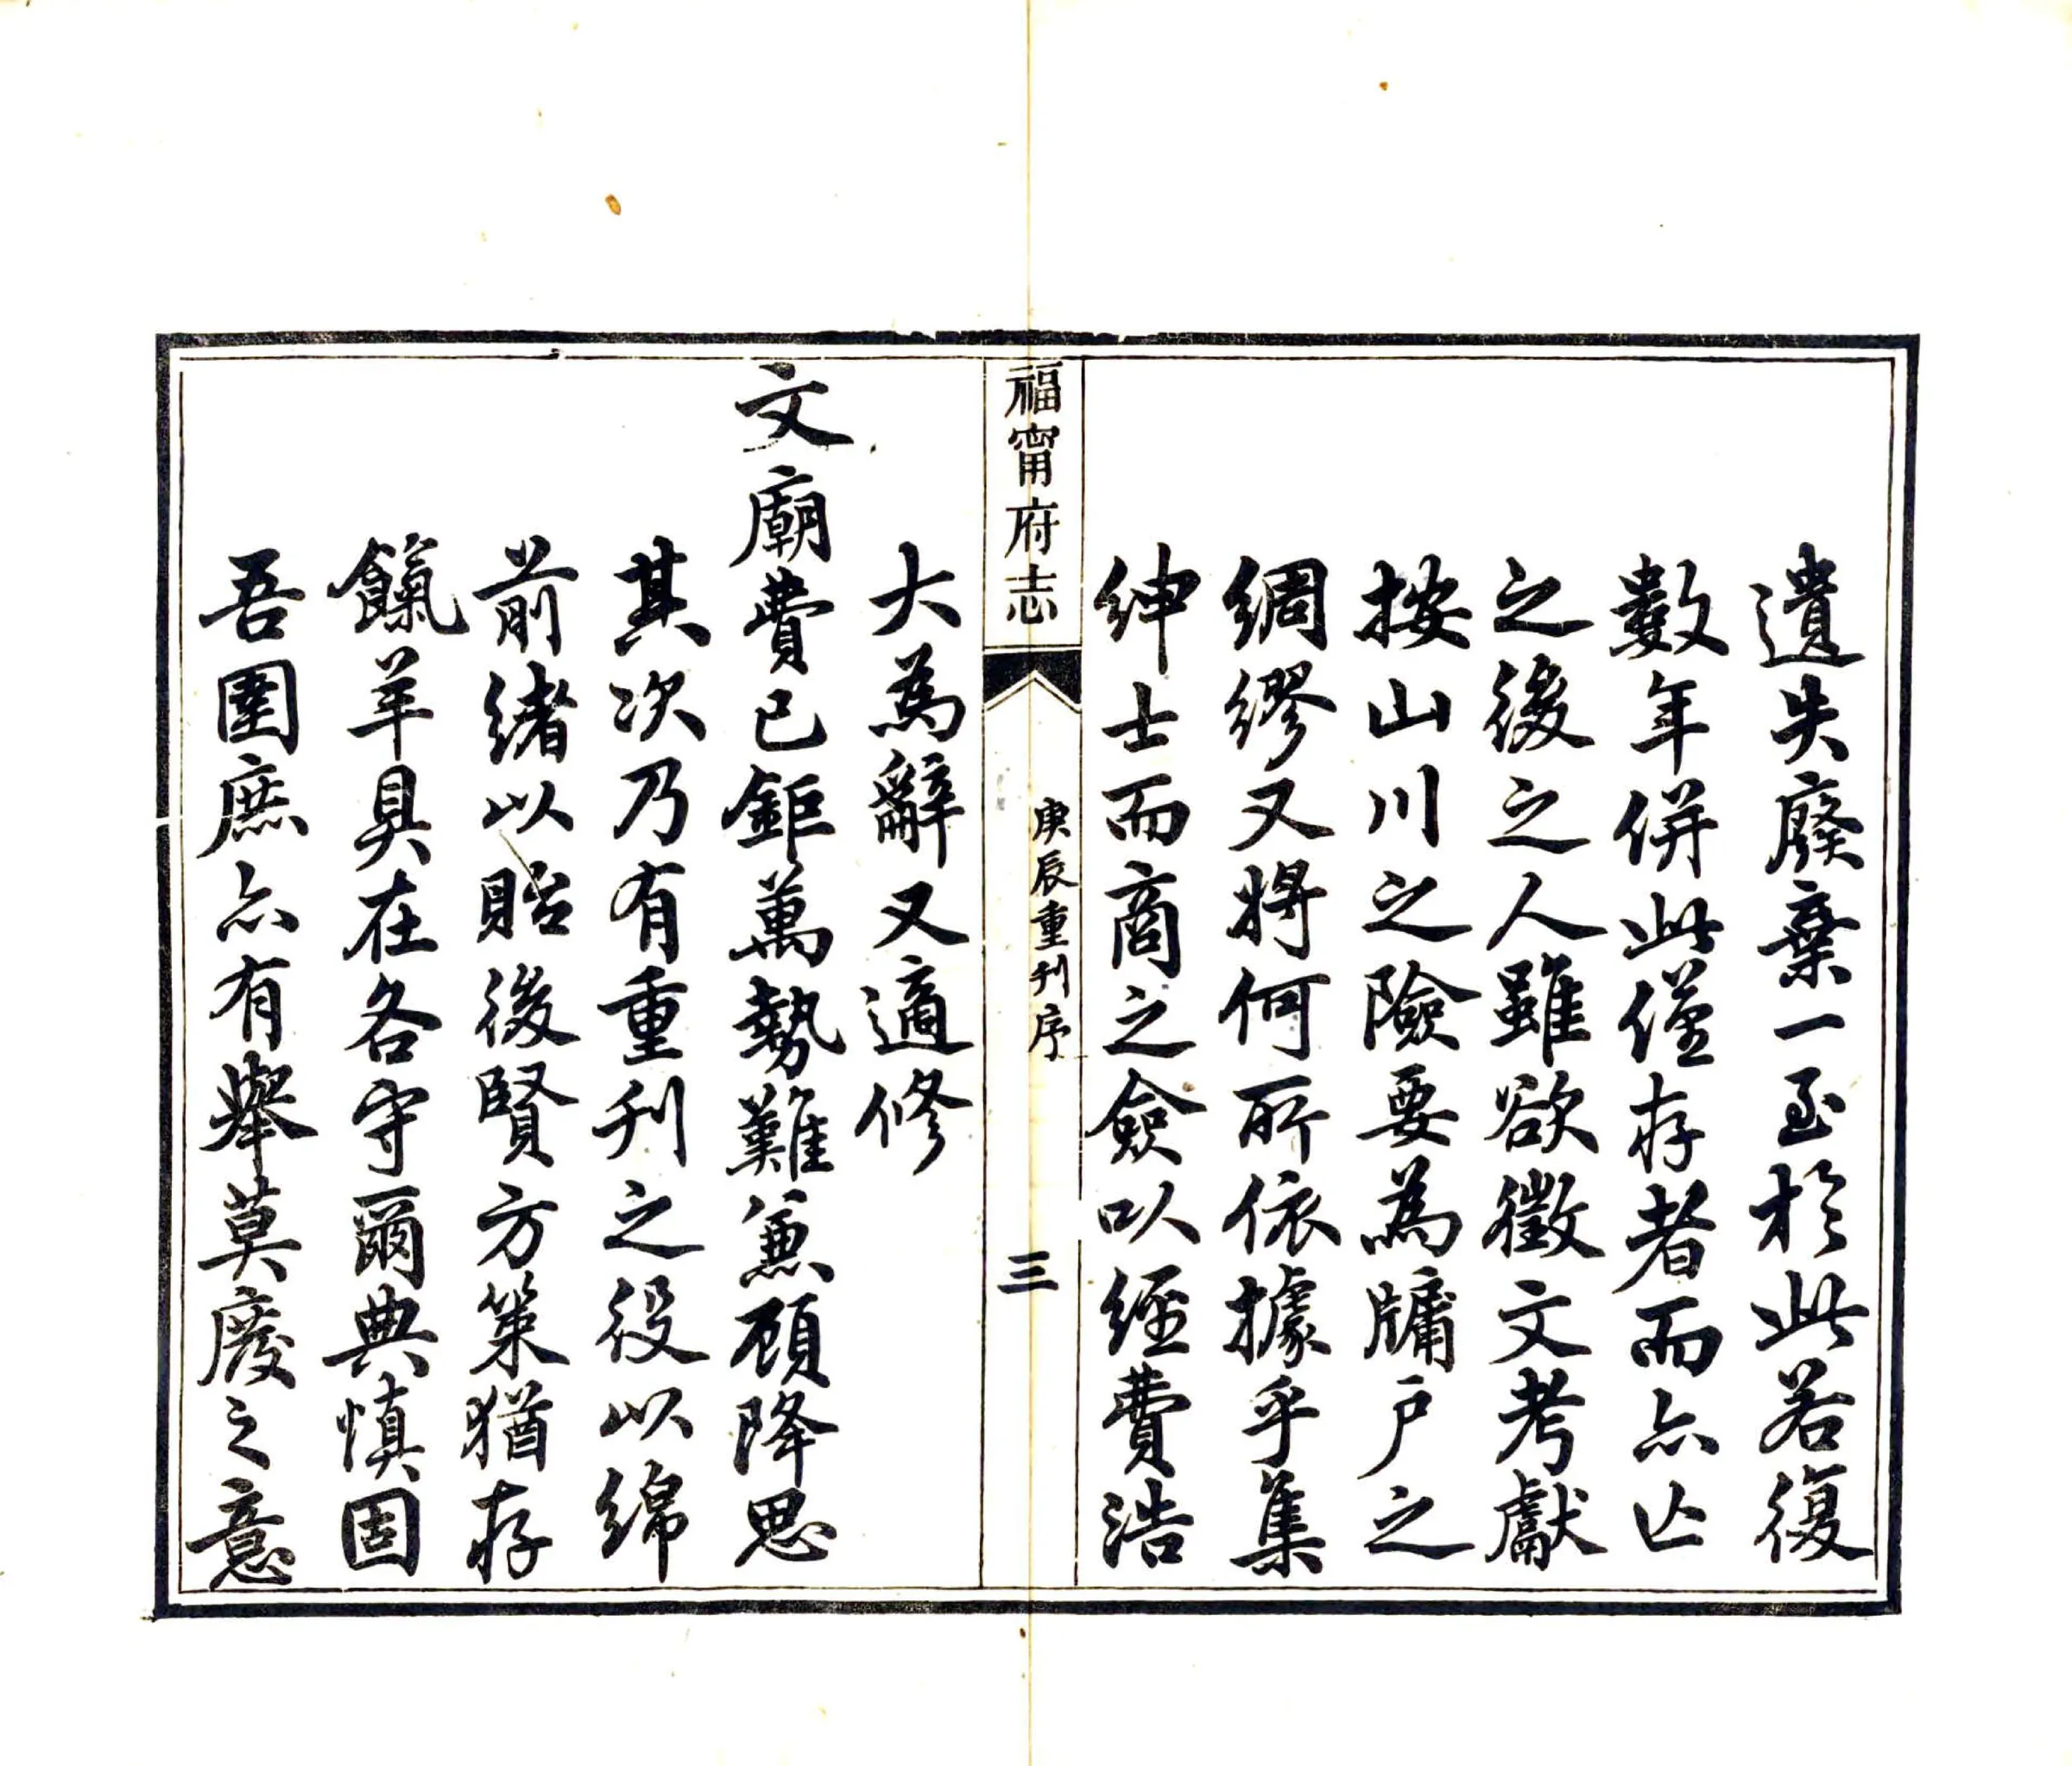 遺失廢棄一至於此若復
數年併此僅存者而亦亡
之後之人雖欲徵文考獻
按山川之險要為牖戶之
綢繆又將何所依據乎集
紳士而商之僉以經費浩
福甯府志
庚辰重刊序
三
大為辭又適修
文廟費已鉅萬勢難兼顧降思
其次乃有重刊之役以綿
前緒以貽後賢方策猶存
餼羊具在各守爾典慎固
吾圉庶亦有舉莫廢之意